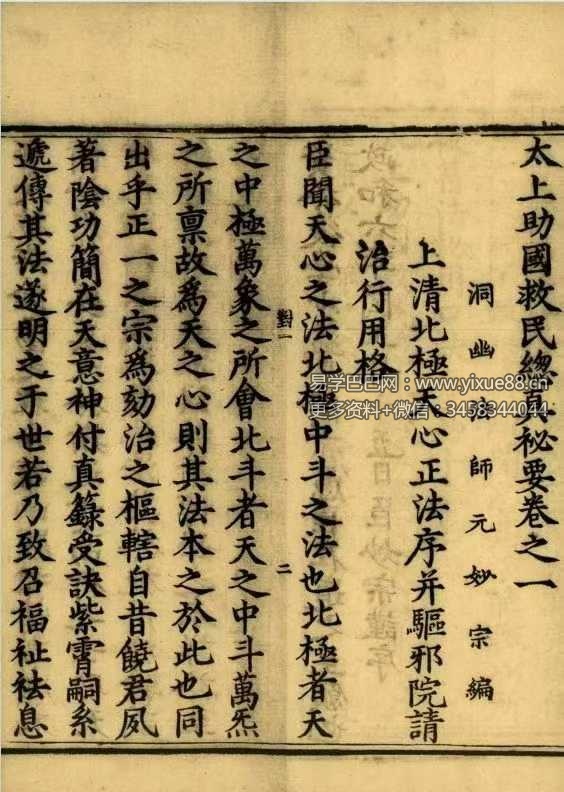 太上助國救民總真祕要卷之一
洞幽法師元妙宗編
上清北極天心正法序并驅邪院請
治行用格
臣聞天心之法北極中斗之法也北極者天
之中極萬象之所會北斗者天之中斗萬炁
之所禀故爲天之心則其法本之於此也同
出乎正一之宗爲劾治之樞轄自昔饒君夙
著陰功簡在天意神付真籙受訣紫霄嗣系
遞傳其法遂明之于世若乃致召福祉祛息
對一
二
易学巴巴网：www.yixue88.cn
更多资料+微信：3458344044